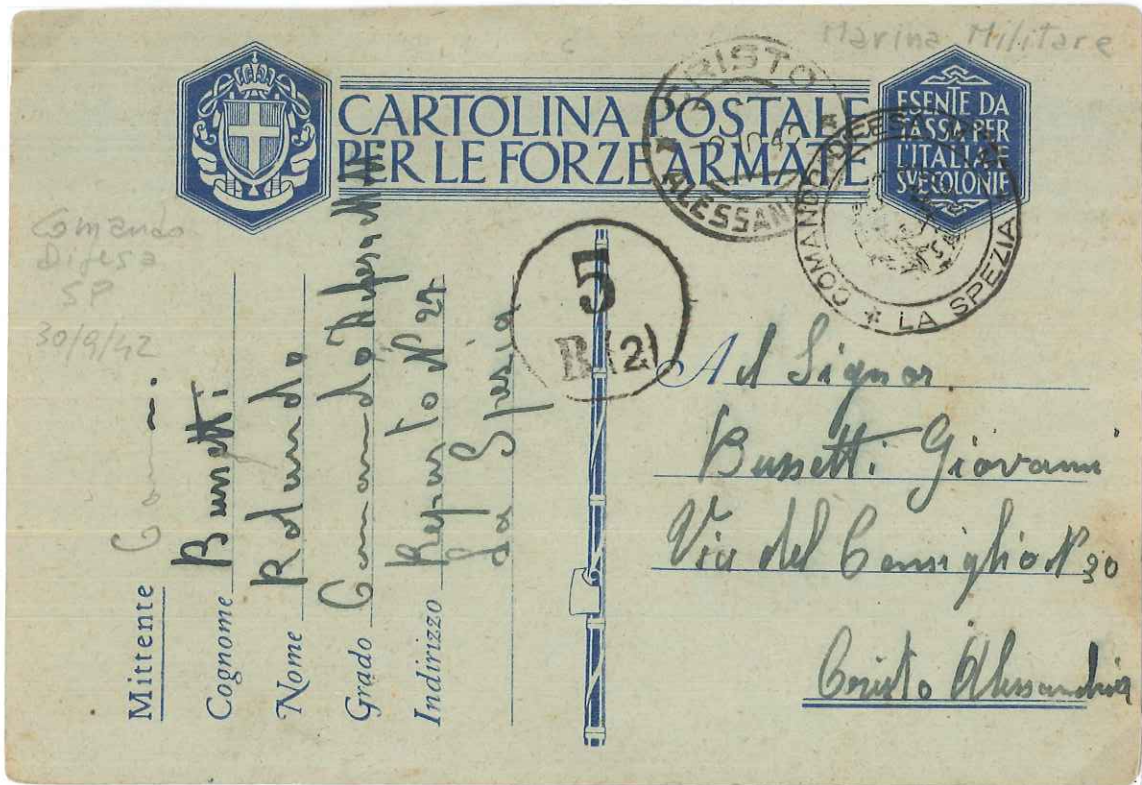 Marina Militare
CARTOLINA POSTALE
PER LE FORZE ARMATE
ESENTE DA
TASSA PER
L'ITALIA E
SVE COLONIE
CRISTO
ALESSAN
COMANDO
LA SPEZIA
Comando
Difesa
SP
30/9/42
5
R (2)
Mittente
Cognome Bussetti
Nome Rolando
Grado Comando
Indirizzo Reparto N 27
La Spezia
Al Signor
Bussetti Giovanni
Via del Consiglio N 30
Cristo Alessandria